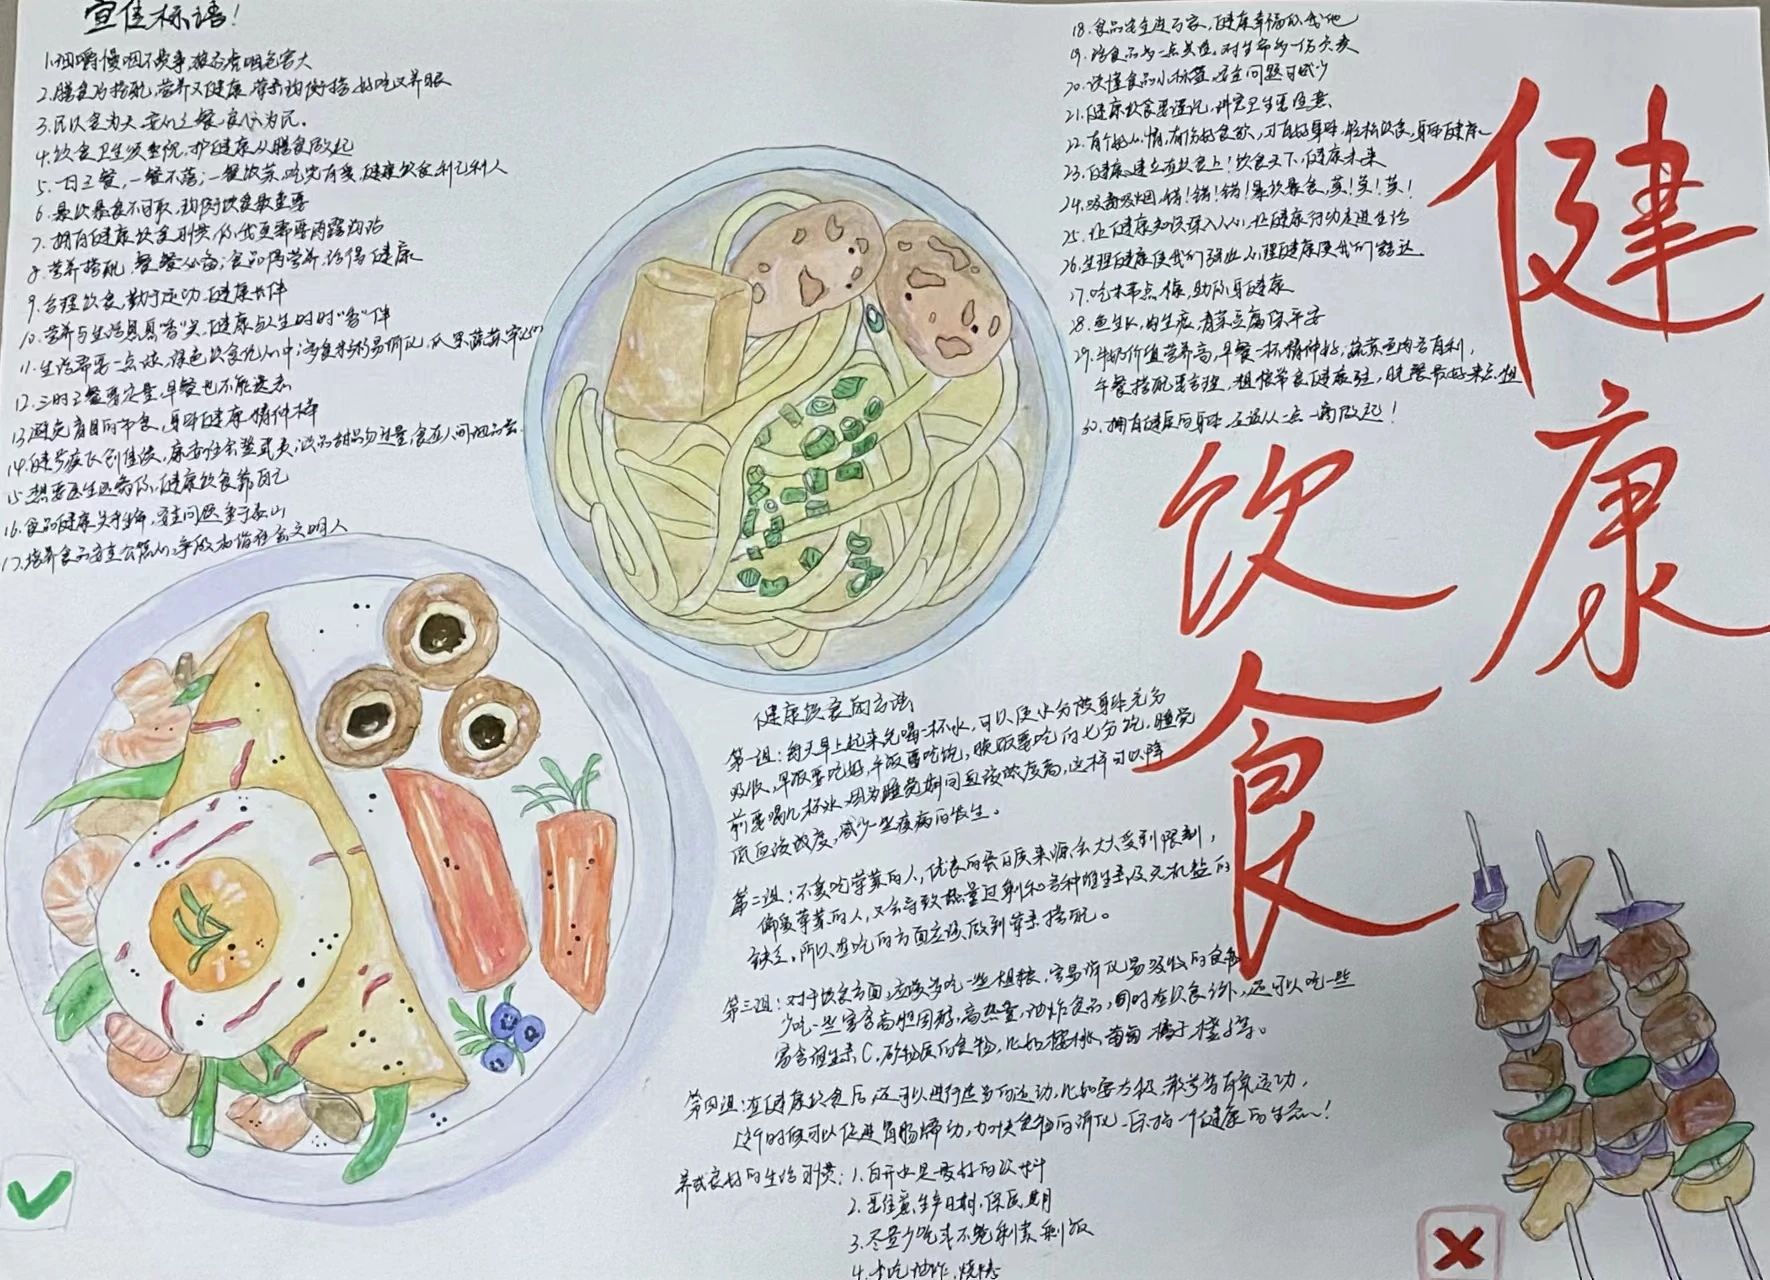 宣传标语！
1.细嚼慢咽不费事，狼吞虎咽危害大
2.膳食巧搭配，营养又健康，营养均衡搭，好吃又养眼
3.民以食为天，
4.饮食卫生须重视，护健康从膳食做起
5.一日三餐，一餐不落；一餐饮茶，健康饮食利己利人
6.暴饮暴食不可取，均衡饮食最重要
7.拥有健康饮食习惯，你我更需要
8.营养搭配，餐餐必备；食品有营养，活得健康
9.合理饮食，勤于运动，健康长伴
10.营养与生活息息"香"关，健康与人生时时"香"伴
11.生活需要一点绿，绿色饮食记心中；多食杂粮易消化，瓜果蔬菜
12.三时三餐要定量，早餐也不能遗忘
13.避免盲目的节食，身体健康精神棒
14.
15.想要医生远离你，健康饮食靠自己
16.食品健康关乎生命，安全问题重于泰山
17.培养食品安全公德心，争做和谐社会文明人
18.食品安全进万家，健康幸福你我他
19.给食品多一点关注，对生命多一份关爱
20.读懂食品小标签，安全问题可减少
21.健康饮食要谨记，讲究卫生要注意
22.有个好心情，有份好食欲，才有好身体，轻松饮食，身体健康
23.健康，建立在饮食上！饮食天下，健康未来
24.吸毒吸烟，错！错！错！暴饮暴食，莫！莫！莫！
25.让健康知识深入人心，让健康行动走进生活
26.生理健康使我们强壮，心理健康使我们豁达
27.吃米带点糠，助你身健康
28.鱼生火，肉生痰，青菜豆腐保平安
29.牛奶价值营养高，早餐一杯精神好；蔬菜鱼肉各有利，
午餐搭配要合理，粗粮常食健康在，晚餐最好来点粗
30.拥有健康的身体，应该从一点一滴做起！
健康
饮食
健康饮食的方法
第一组：每天早上起来先喝一杯水，可以使水分被身体充分
吸收，早饭要吃好，午饭要吃饱，晚饭要吃的七分饱，睡觉
前要喝几杯水，因为睡觉期间血液浓度高，这样可以降
低血液浓度，减少一些疾病的发生。
第二组：不爱吃荤菜的人，优良的蛋白质来源会大大受到限制，
偏爱荤菜的人，又会导致热量过剩和各种维生素及无机盐的
缺乏，所以在吃的方面应该做到荤素搭配。
第三组：对于饮食方面，应该多吃一些粗粮，容易消化易吸收的食物
少吃一些富含高胆固醇，高热量，油炸食品，同时在饮食之外，还可以吃一些
富含维生素C，矿物质的食物，比如樱桃，葡萄，橘子，橙子等。
第四组：在健康饮食后，还可以进行适当的运动，比如要太极，散步等有氧运动，
这个时候可以促进胃肠蠕动，加快食物的消化，保持一个健康的生态～！
养成良好的生活习惯：1.白开水是最好的饮料
2.要注意生产日期，保质期
3.尽量少吃或不吃剩菜剩饭
4.少吃油炸，烧烤